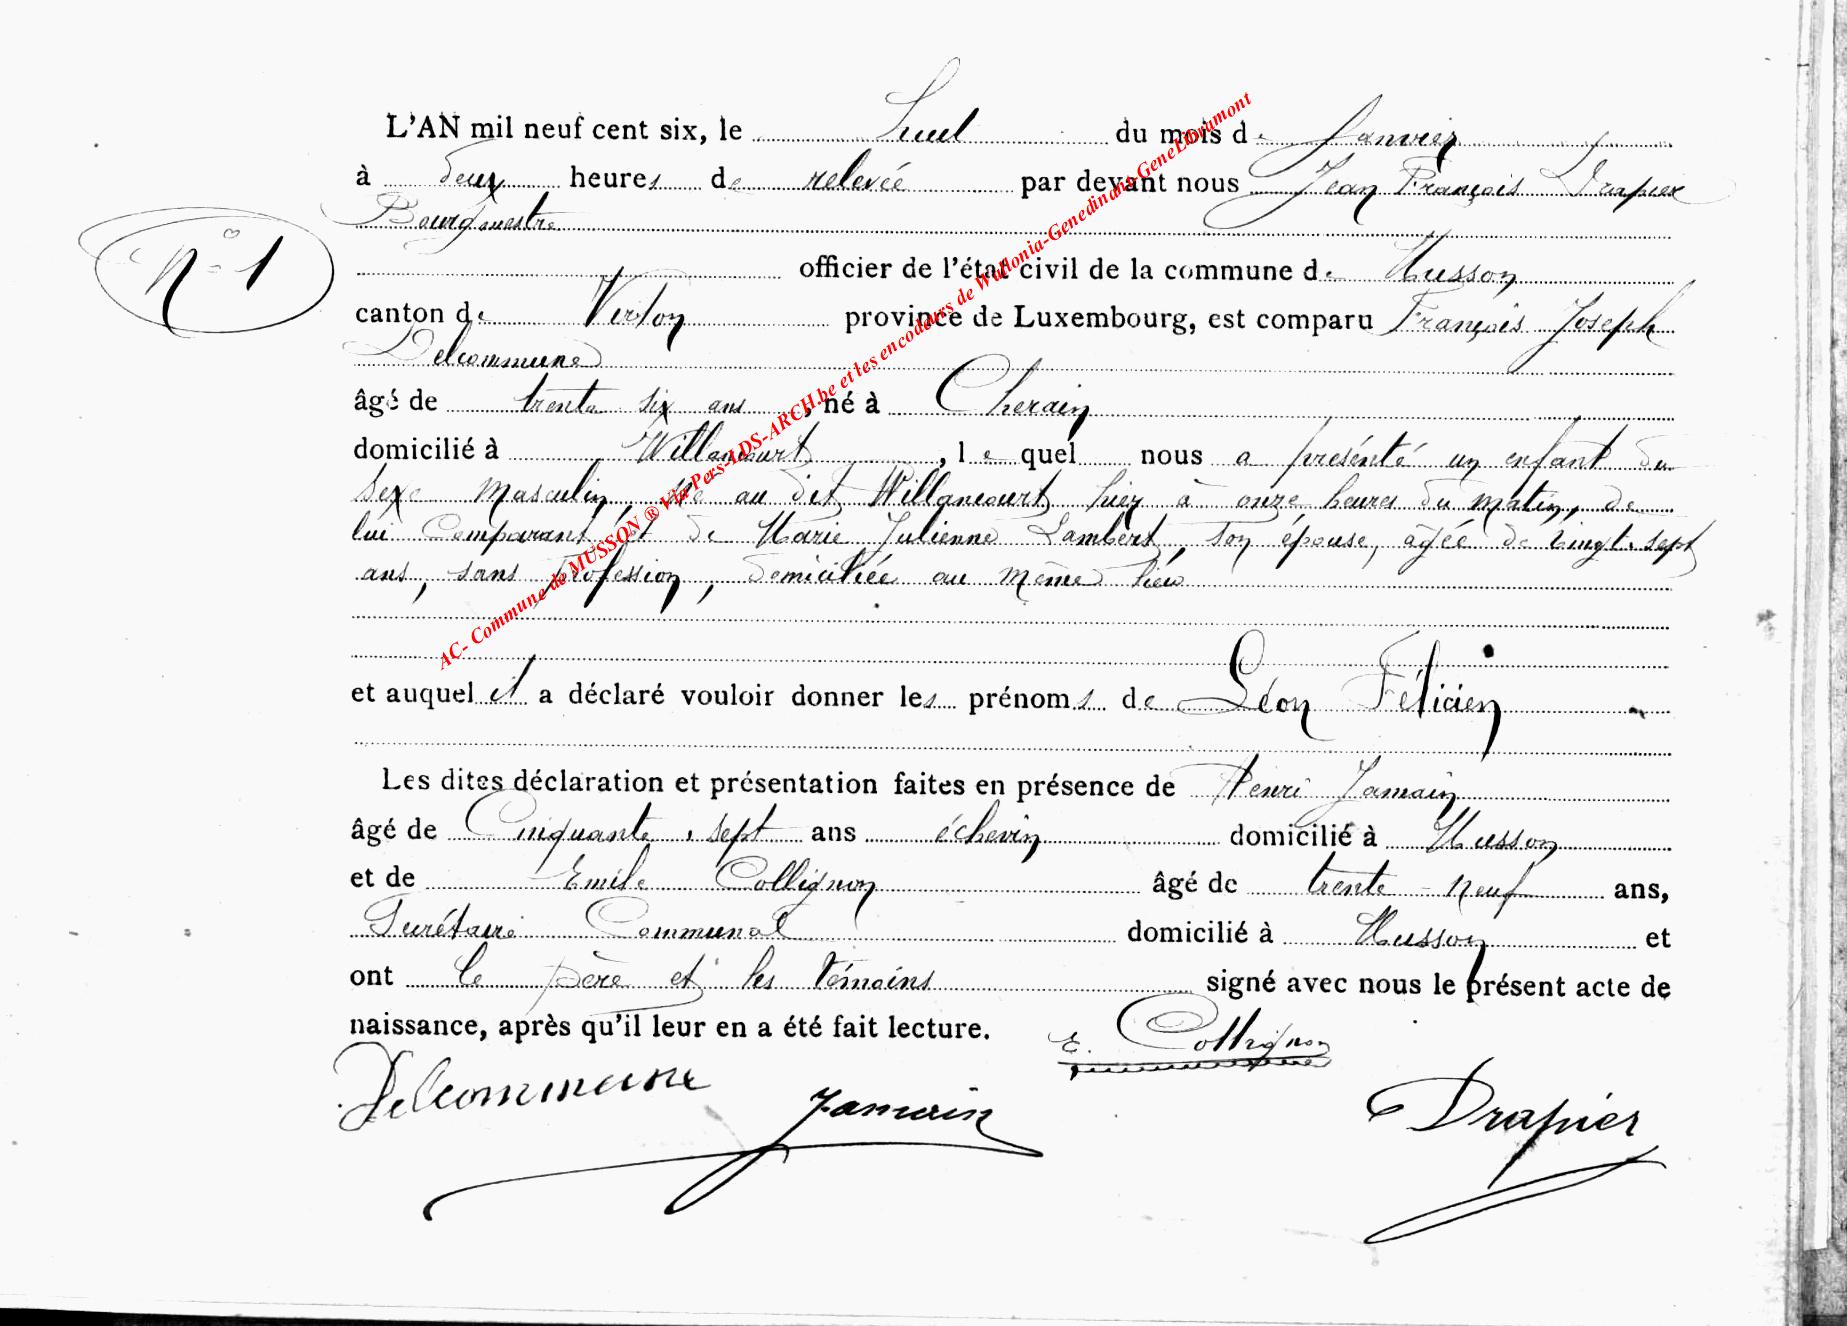 L'AN mil neuf cent six, le huit du mois de Janvier
à deux heures de relevée par devant nous Jean François Drapier
Bourgmestre
N° 1
officier de l'état civil de la commune de Musson
canton de Virton province de Luxembourg, est comparu François Joseph
Delcommune
âgé de trente six ans, né à Cherain
domicilié à Willancourt, lequel nous a présenté un enfant du
sexe masculin, né au dit Willancourt hier à onze heures du matin, de
lui Comparant et de Marie Julienne Lambert, son épouse, âgée de vingt-sept
ans, sans profession, domiciliée au même lieu
et auquel il a déclaré vouloir donner les prénoms de Léon Félicien
Les dites déclaration et présentation faites en présence de Henri Jamain
âgé de Cinquante-sept ans échevin domicilié à Musson
et de Emile Collignon âgé de trente-neuf ans,
Secrétaire Communal domicilié à Musson et
ont le père et les témoins signé avec nous le présent acte de
naissance, après qu'il leur en a été fait lecture.
E. Collignon
Delcommune Jamain Drapier
AC- Commune de MUSSON ® Via Pers-LDS-ARCH.be et les encodeurs de Wallonia-Genedinant-GeneLibramont